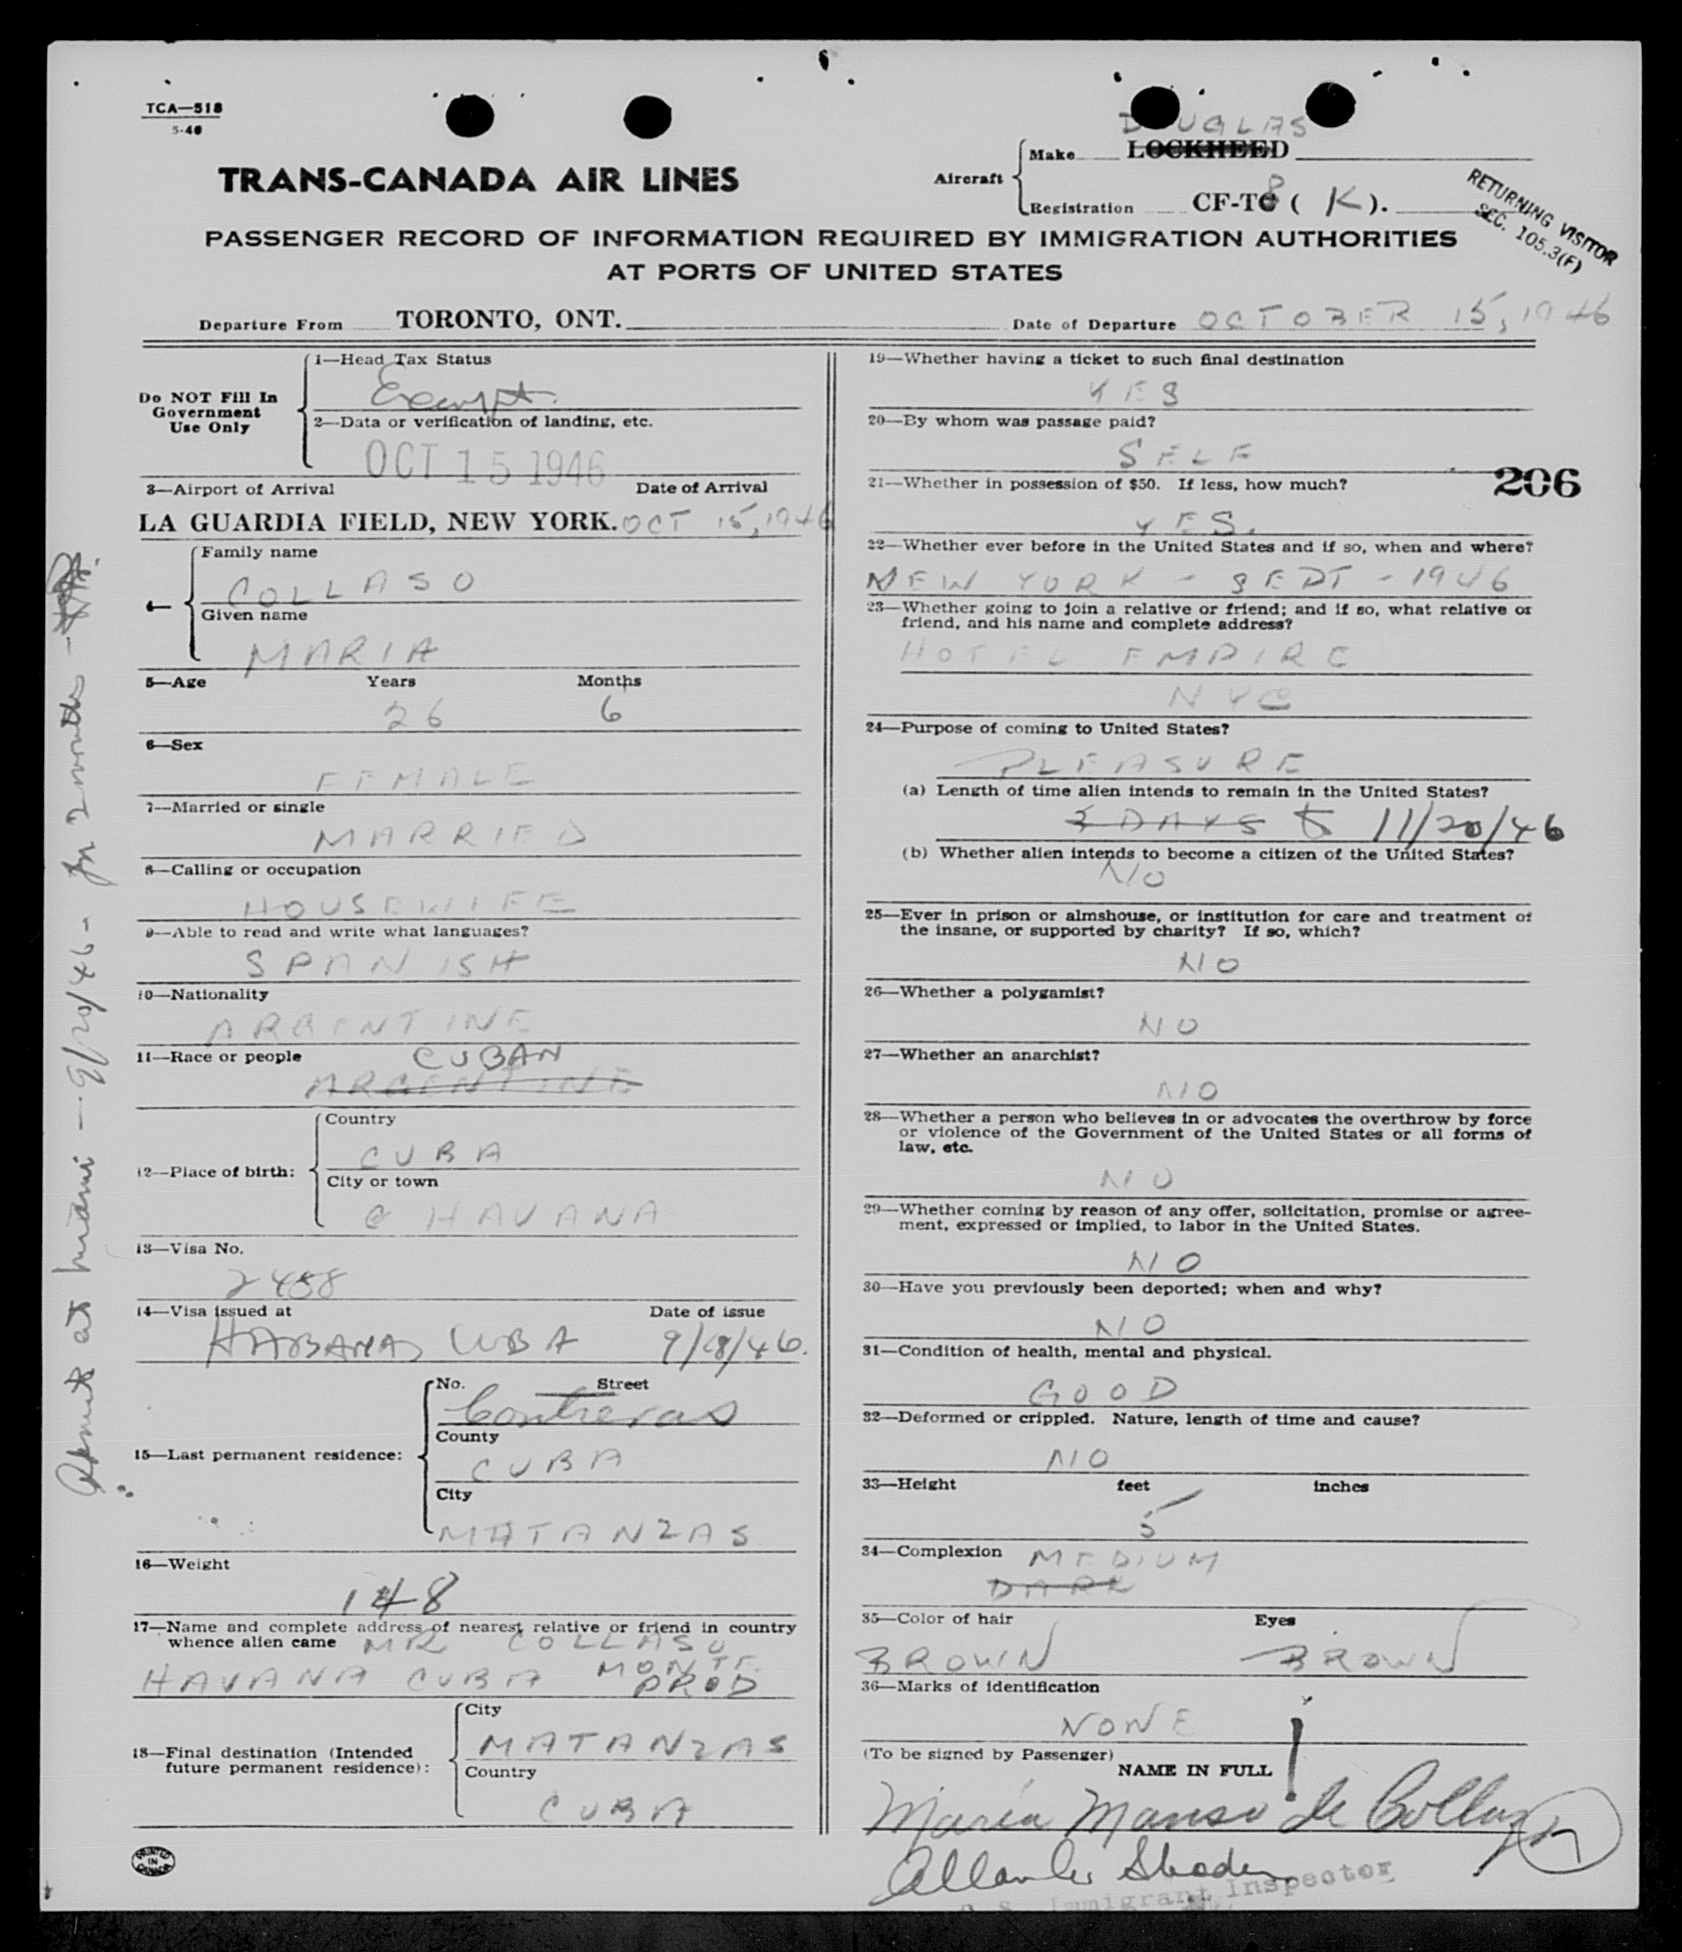 TCA—518
5-46
DOUGLAS
Aircraft Make LOCKHEED
Registration CF-T8 (K).
TRANS-CANADA AIR LINES
RETURNING VISITOR
SEC. 105.3(F)
PASSENGER RECORD OF INFORMATION REQUIRED BY IMMIGRATION AUTHORITIES
AT PORTS OF UNITED STATES
Departure From TORONTO, ONT. Date of Departure OCTOBER 15, 1946
Do NOT Fill In
Government
Use Only
1—Head Tax Status
Exempt.
2—Data or verification of landing, etc.
OCT 15 1946
3—Airport of Arrival Date of Arrival
LA GUARDIA FIELD, NEW YORK. OCT 15, 1946
4—
Family name
COLLASO
Given name
MARIA
5—Age Years Months
26 6
6—Sex
FEMALE
7—Married or single
MARRIED
8—Calling or occupation
HOUSEWIFE
9—Able to read and write what languages?
SPANISH
10—Nationality
ARGENTINE
11—Race or people CUBAN
ARGENTINE
12—Place of birth:
Country
CUBA
City or town
HAVANA
13—Visa No.
2488
14—Visa issued at Date of issue
HABANA CUBA 9/18/46.
15—Last permanent residence:
No. Street
Contreras
County
CUBA
City
MATANZAS
16—Weight
148
17—Name and complete address of nearest relative or friend in country
whence alien came MR COLLASO
HAVANA CUBA MONTE
PROD
18—Final destination (Intended
future permanent residence):
City
MATANZAS
Country
CUBA
PRINTED
IN
CANADA
19—Whether having a ticket to such final destination
YES
20—By whom was passage paid?
SELF
206
21—Whether in possession of $50. If less, how much?
YES.
22—Whether ever before in the United States and if so, when and where?
NEW YORK - SEPT - 1946
23—Whether going to join a relative or friend; and if so, what relative or
friend, and his name and complete address?
HOTEL EMPIRE
NYC
24—Purpose of coming to United States?
PLEASURE
(a) Length of time alien intends to remain in the United States?
3 DAYS to 11/20/46
(b) Whether alien intends to become a citizen of the United States?
NO
25—Ever in prison or almshouse, or institution for care and treatment of
the insane, or supported by charity? If so, which?
NO
26—Whether a polygamist?
NO
27—Whether an anarchist?
NO
28—Whether a person who believes in or advocates the overthrow by force
or violence of the Government of the United States or all forms of
law, etc.
NO
29—Whether coming by reason of any offer, solicitation, promise or agree-
ment, expressed or implied, to labor in the United States.
NO
30—Have you previously been deported; when and why?
NO
31—Condition of health, mental and physical.
GOOD
32—Deformed or crippled. Nature, length of time and cause?
NO
33—Height feet inches
5
34—Complexion MEDIUM
DARK
35—Color of hair Eyes
BROWN BROWN
36—Marks of identification
NONE
(To be signed by Passenger) NAME IN FULL
Maria Manso de Collazo
Immigrant Inspector
Admitted at Miami - 9/20/46 - for 2 months -